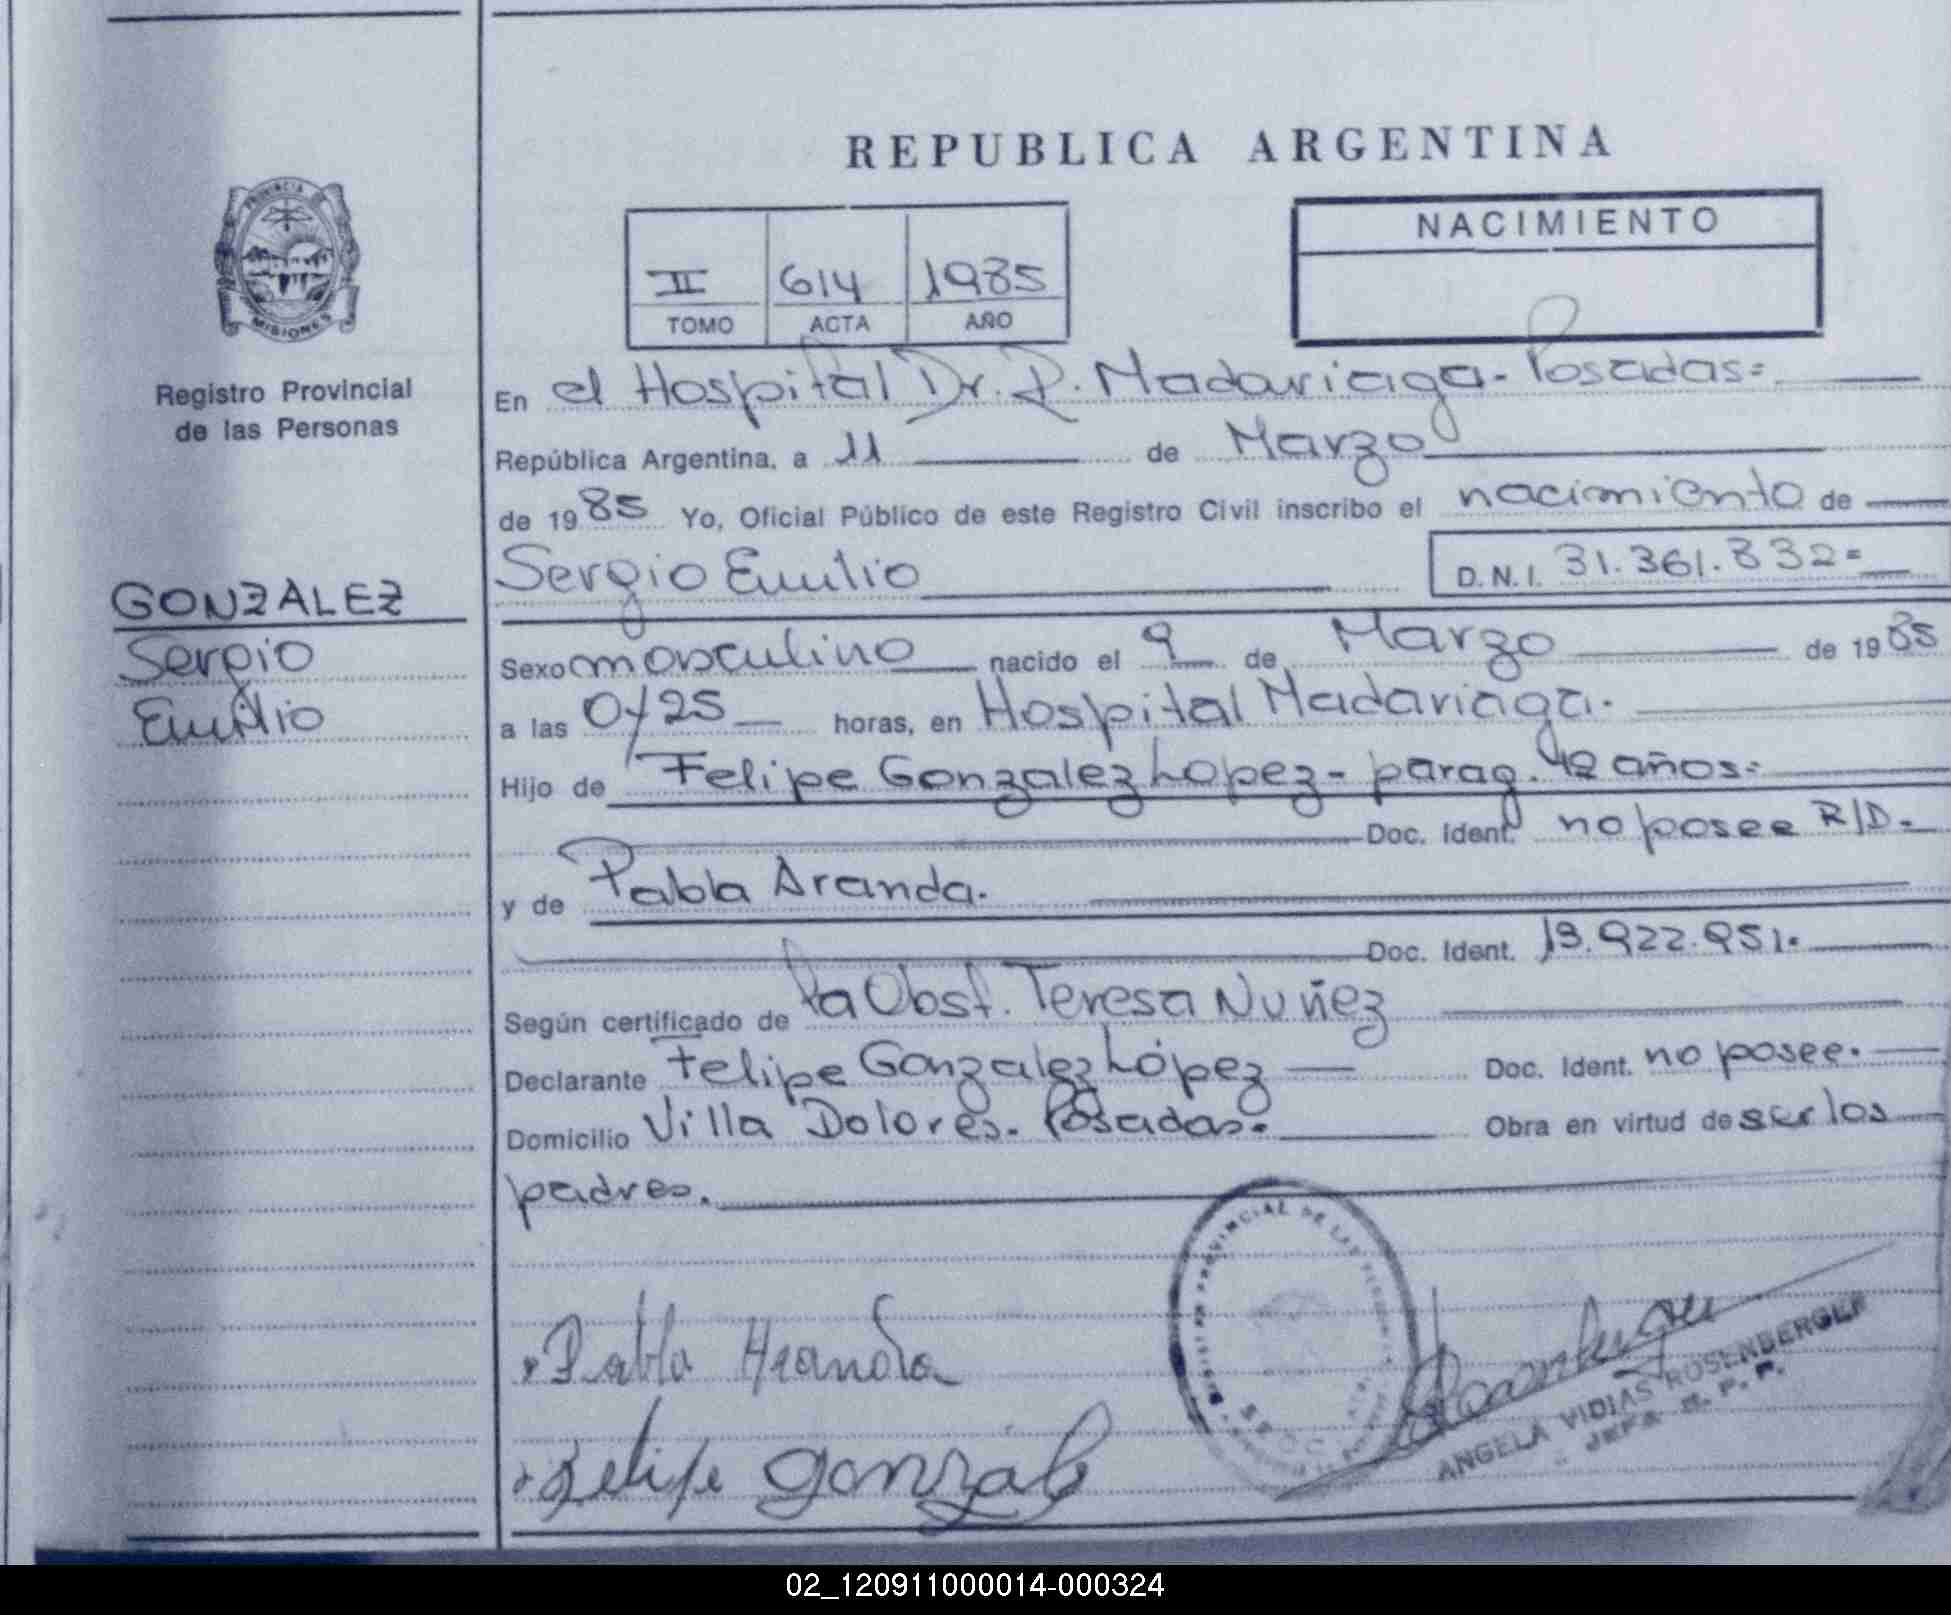 REPUBLICA ARGENTINA
PROVINCIA
MISIONES
Registro Provincial
de las Personas
GONZALEZ
Sergio
Emilio
II 614 1985
TOMO ACTA AÑO
NACIMIENTO
En el Hospital Dr. R. Madariaga - Posadas =
República Argentina, a 11 de Marzo
de 1985 Yo, Oficial Público de este Registro Civil inscribo el nacimiento de
Sergio Emilio D.N.I. 31.361.832=
Sexo masculino nacido el 9 de Marzo de 1985
a las 0y25 horas, en Hospital Madariaga.
Hijo de Felipe Gonzalez Lopez - parag. 42 años =
Doc. Ident. no posee R/D.
y de Pabla Aranda.
Doc. Ident. 13.922.951.
Según certificado de la Obst. Teresa Nuñez
Declarante Felipe Gonzalez López Doc. Ident. no posee.
Domicilio Villa Dolores - Posadas. Obra en virtud de ser los
padres.
Pabla Aranda
Felipe Gonzalez
PROVINCIAL DE LAS
ANGELA VIDIAS ROSENBERGER
JEFA
02_120911000014-000324